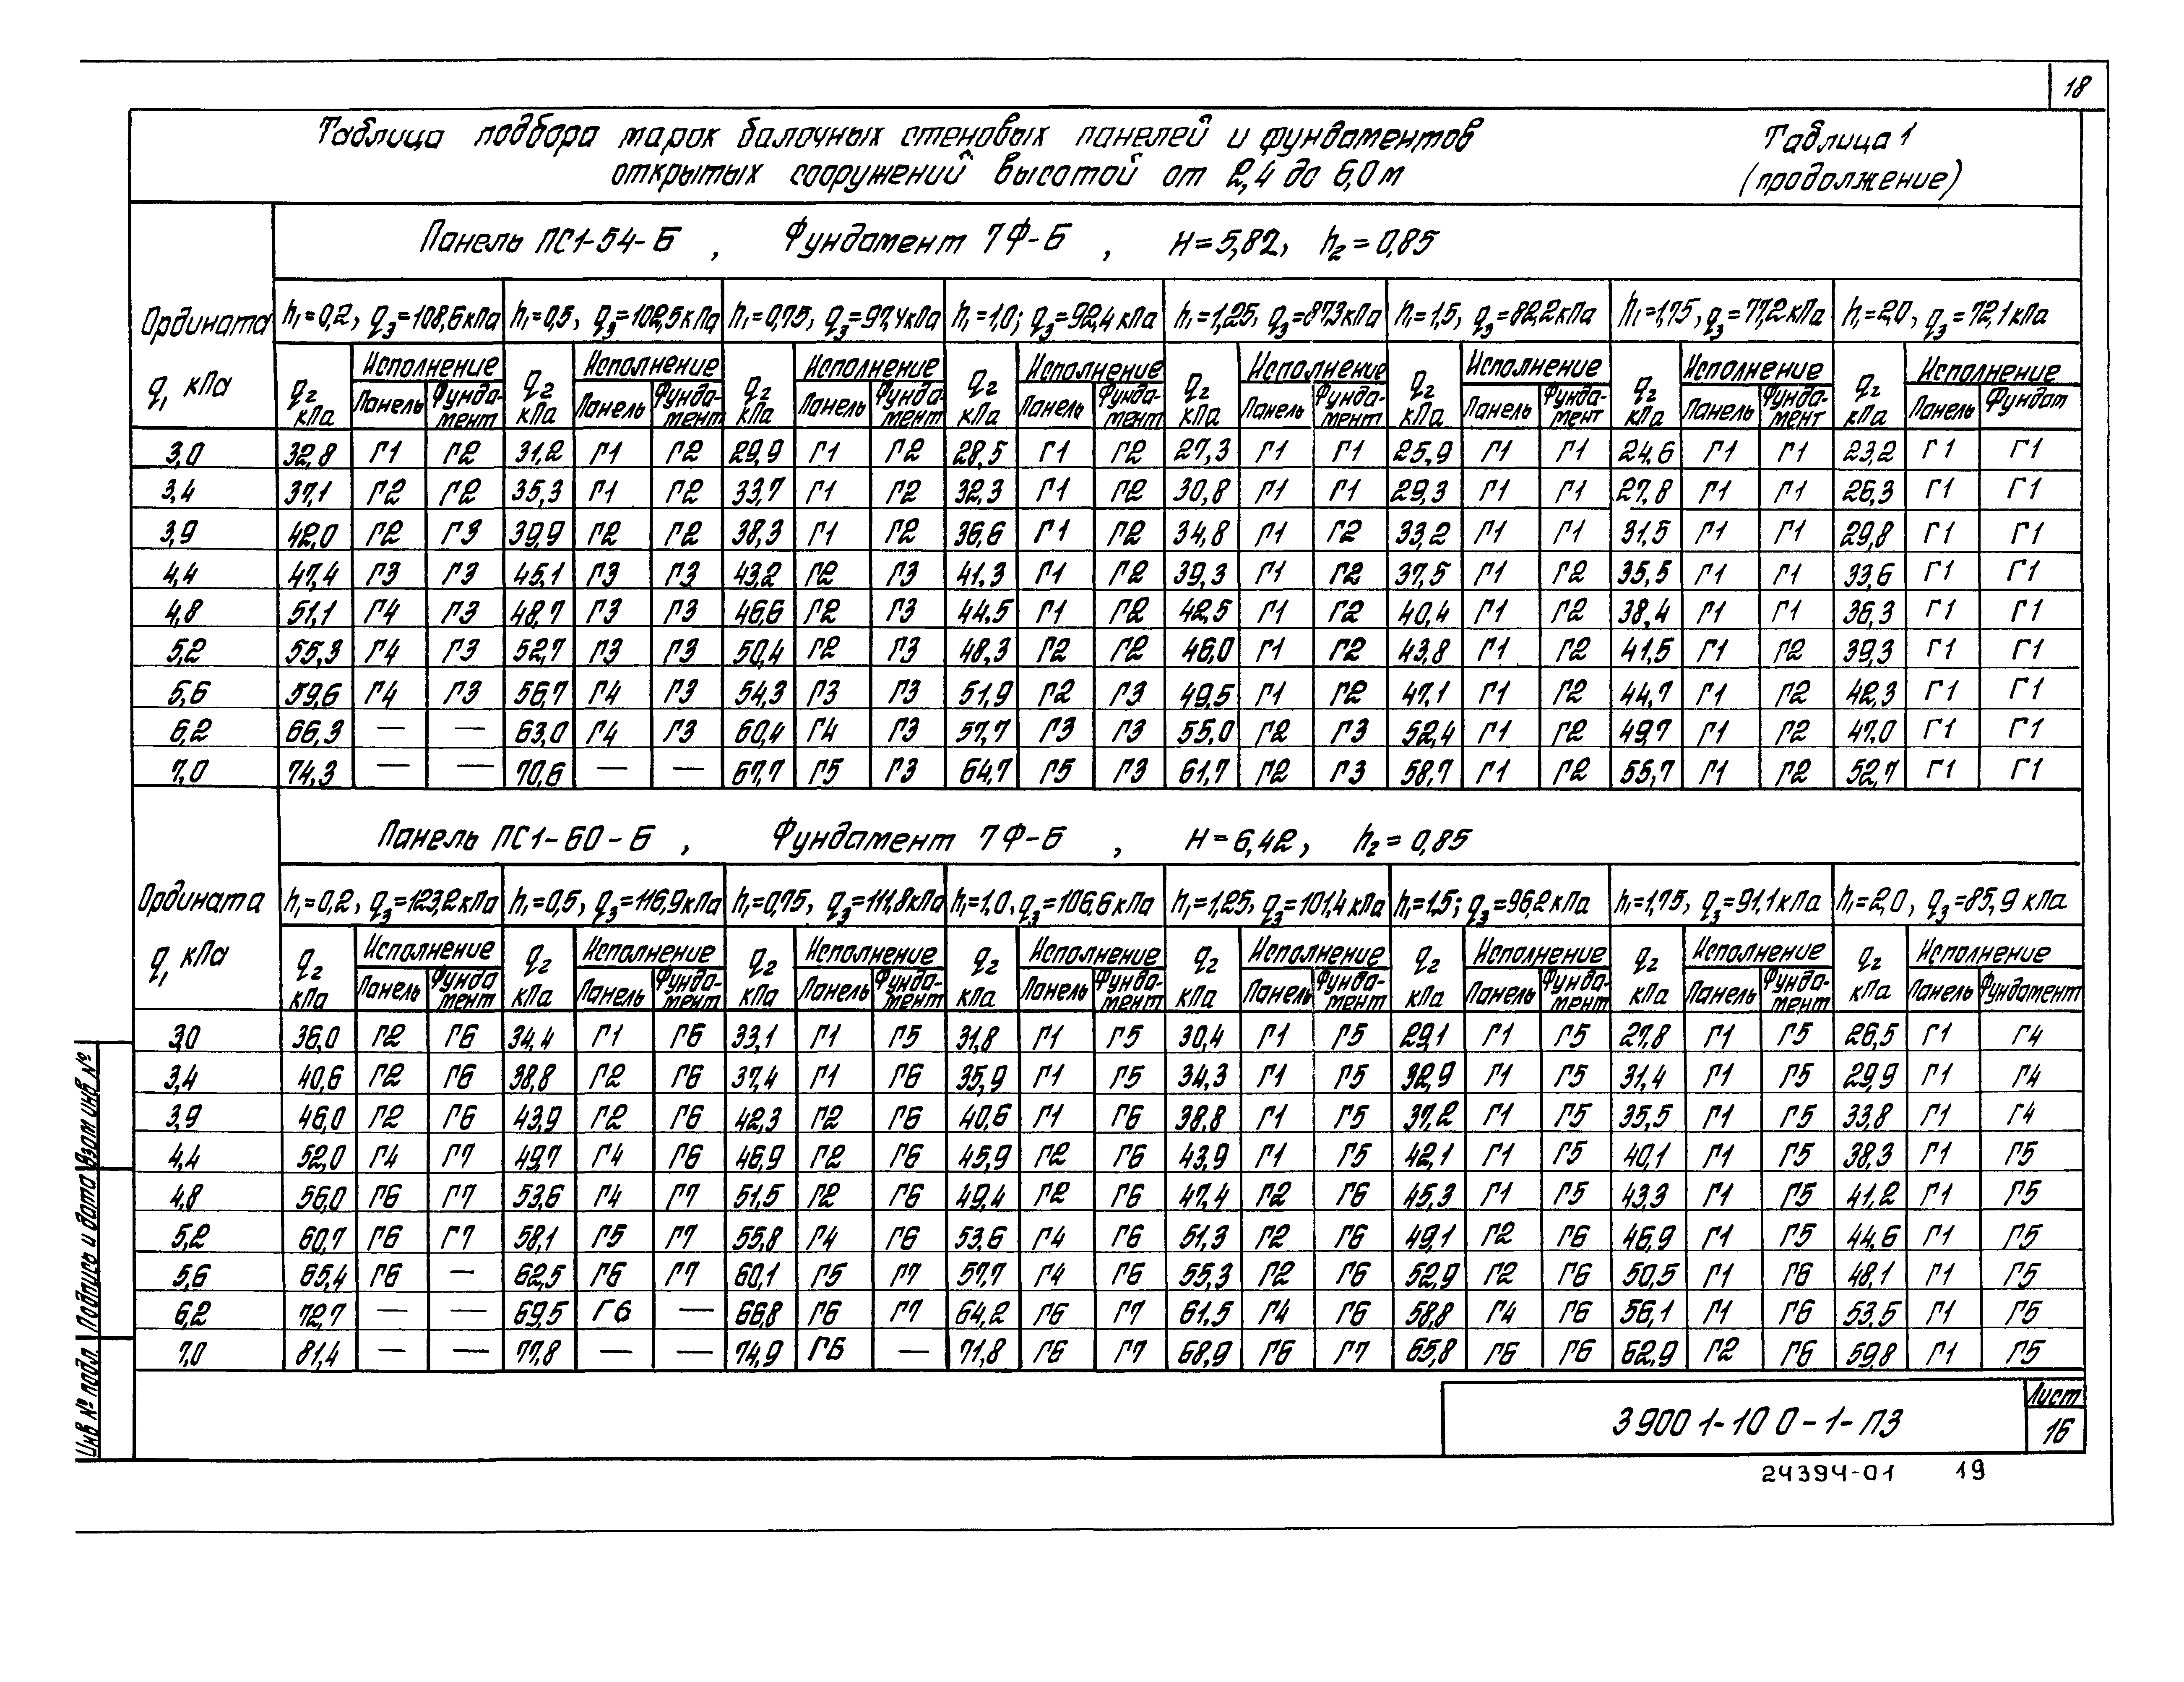 18
Таблица подбора марок балочных стеновых панелей и фундаментов
открытых сооружений высотой от 2,4 до 6,0 м
Таблица 1
(продолжение)
Панель ПС1-54-Б , Фундамент 7Ф-Б , H=5,82, h₂=0,85
Ордината q₁ кПа
h₁=0,2, q₃=108,6кПа h₁=0,5, q₃=102,5кПа h₁=0,75, q₃=97,4кПа h₁=1,0; q₃=92,4кПа h₁=1,25, q₃=87,3кПа h₁=1,5, q₃=82,2кПа h₁=1,75, q₃=77,2кПа h₁=2,0, q₃=72,1кПа
q₂ кПа Исполнение q₂ кПа Исполнение q₂ кПа Исполнение q₂ кПа Исполнение q₂ кПа Исполнение q₂ кПа Исполнение q₂ кПа Исполнение q₂ кПа Исполнение
Панель Фунда-мент Панель Фунда-мент Панель Фунда-мент Панель Фунда-мент Панель Фунда-мент Панель Фунда-мент Панель Фунда-мент Панель Фундат
3,0 32,8 Г1 Г2 31,2 Г1 Г2 29,9 Г1 Г2 28,5 Г1 Г2 27,3 Г1 Г1 25,9 Г1 Г1 24,6 Г1 Г1 23,2 Г1 Г1
3,4 37,1 Г2 Г2 35,3 Г1 Г2 33,7 Г1 Г2 32,3 Г1 Г2 30,8 Г1 Г1 29,3 Г1 Г1 27,8 Г1 Г1 26,3 Г1 Г1
3,9 42,0 Г2 Г3 39,9 Г2 Г2 38,3 Г1 Г2 36,6 Г1 Г2 34,8 Г1 Г2 33,2 Г1 Г1 31,5 Г1 Г1 29,8 Г1 Г1
4,4 47,4 Г3 Г3 45,1 Г3 Г3 43,2 Г2 Г3 41,3 Г1 Г2 39,3 Г1 Г2 37,5 Г1 Г2 35,5 Г1 Г1 33,6 Г1 Г1
4,8 51,1 Г4 Г3 48,7 Г3 Г3 46,6 Г2 Г3 44,5 Г1 Г2 42,5 Г1 Г2 40,4 Г1 Г2 38,4 Г1 Г1 36,3 Г1 Г1
5,2 55,3 Г4 Г3 52,7 Г3 Г3 50,4 Г2 Г3 48,3 Г2 Г2 46,0 Г1 Г2 43,8 Г1 Г2 41,5 Г1 Г2 39,3 Г1 Г1
5,6 59,6 Г4 Г3 56,7 Г4 Г3 54,3 Г3 Г3 51,9 Г2 Г3 49,5 Г1 Г2 47,1 Г1 Г2 44,7 Г1 Г2 42,3 Г1 Г1
6,2 66,3 — — 63,0 Г4 Г3 60,4 Г4 Г3 57,7 Г3 Г3 55,0 Г2 Г3 52,4 Г1 Г2 49,7 Г1 Г2 47,0 Г1 Г1
7,0 74,3 — — 70,6 — — 67,7 Г5 Г3 64,7 Г5 Г3 61,7 Г2 Г3 58,7 Г1 Г2 55,7 Г1 Г2 52,7 Г1 Г1
Панель ПС1-60-Б , Фундамент 7Ф-Б , H=6,42, h₂=0,85
Ордината q₁ кПа
h₁=0,2, q₃=123,2кПа h₁=0,5, q₃=116,9кПа h₁=0,75, q₃=111,8кПа h₁=1,0, q₃=106,6кПа h₁=1,25, q₃=101,4кПа h₁=1,5; q₃=96,2кПа h₁=1,75, q₃=91,1кПа h₁=2,0, q₃=85,9кПа
q₂ кПа Исполнение q₂ кПа Исполнение q₂ кПа Исполнение q₂ кПа Исполнение q₂ кПа Исполнение q₂ кПа Исполнение q₂ кПа Исполнение q₂ кПа Исполнение
Панель Фунда мент Панель Фунда-мент Панель Фунда-мент Панель Фунда-мент Панель Фунда-мент Панель Фунда-мент Панель Фунда-мент Панель Фундамент
3,0 36,0 Г2 Г6 34,4 Г1 Г6 33,1 Г1 Г5 31,8 Г1 Г5 30,4 Г1 Г5 29,1 Г1 Г5 27,8 Г1 Г5 26,5 Г1 Г4
3,4 40,6 Г2 Г6 38,8 Г2 Г6 37,4 Г1 Г6 35,9 Г1 Г5 34,3 Г1 Г5 32,9 Г1 Г5 31,4 Г1 Г5 29,9 Г1 Г4
3,9 46,0 Г2 Г6 43,9 Г2 Г6 42,3 Г2 Г6 40,6 Г1 Г6 38,8 Г1 Г5 37,2 Г1 Г5 35,5 Г1 Г5 33,8 Г1 Г4
4,4 52,0 Г4 Г7 49,7 Г4 Г6 46,9 Г2 Г6 45,9 Г2 Г6 43,9 Г1 Г5 42,1 Г1 Г5 40,1 Г1 Г5 38,3 Г1 Г5
4,8 56,0 Г6 Г7 53,6 Г4 Г7 51,5 Г2 Г6 49,4 Г2 Г6 47,4 Г2 Г6 45,3 Г1 Г5 43,3 Г1 Г5 41,2 Г1 Г5
5,2 60,7 Г6 Г7 58,1 Г5 Г7 55,8 Г4 Г6 53,6 Г4 Г6 51,3 Г2 Г6 49,1 Г2 Г6 46,9 Г1 Г5 44,6 Г1 Г5
5,6 65,4 Г6 — 62,5 Г6 Г7 60,1 Г5 Г7 57,7 Г4 Г6 55,3 Г2 Г6 52,9 Г2 Г6 50,5 Г1 Г6 48,1 Г1 Г5
6,2 72,7 — — 69,5 Г6 — 66,8 Г6 Г7 64,2 Г6 Г7 61,5 Г4 Г6 58,8 Г4 Г6 56,1 Г1 Г6 53,5 Г1 Г5
7,0 81,4 — — 77,8 — — 74,9 Г6 — 71,8 Г6 Г7 68,9 Г6 Г7 65,8 Г6 Г6 62,9 Г2 Г6 59,8 Г1 Г5
Инв № подл. Подпись и дата Взам инв №
3 900 1-10 0-1-ПЗ
Лист
16
24394-01 19